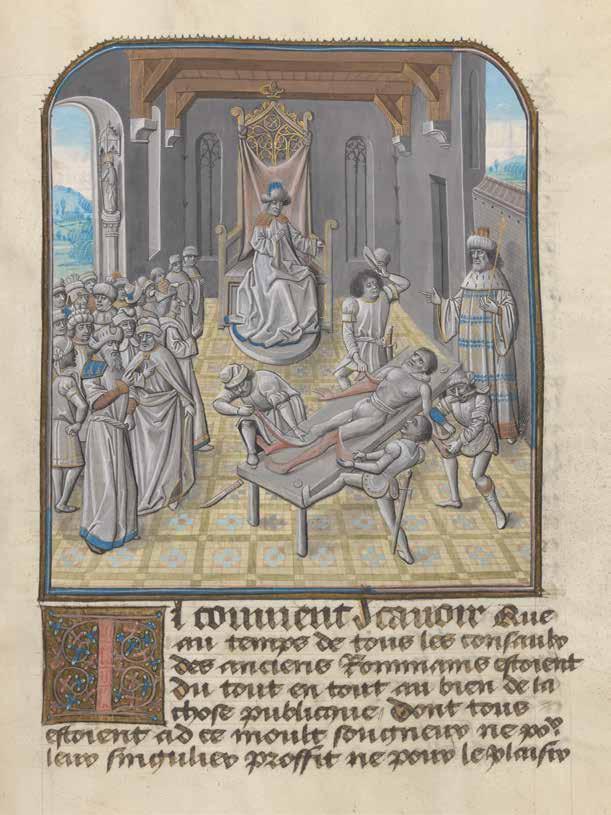 Il convient scavoir Que
au temps de tous les consaulx
des anciens Rommains estoient
du tout en tout au bien de la
chose publicque / dont tous
estoient ad ce moult songneux ne po<sup>r</sup>
leur singulier proffit ne pour le plaisir